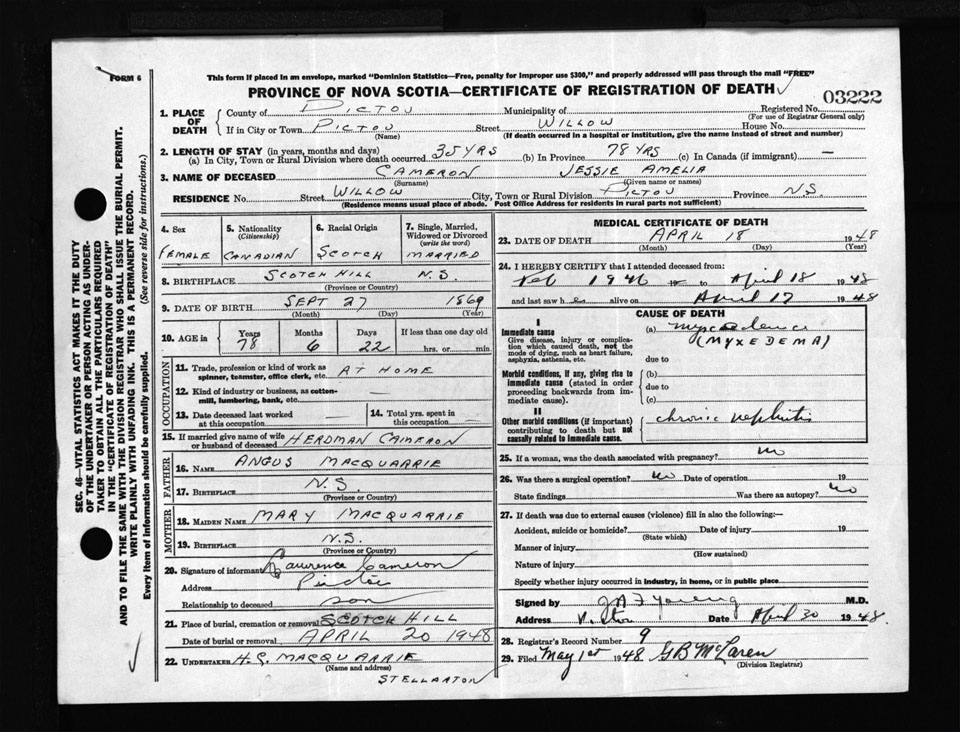 FORM 6
This form if placed in an envelope, marked "Dominion Statistics—Free, penalty for improper use $300," and properly addressed will pass through the mail "FREE"
PROVINCE OF NOVA SCOTIA—CERTIFICATE OF REGISTRATION OF DEATH
03222
1. PLACE OF DEATH
County of PICTOU Municipality of Registered No.
(For use of Registrar General only)
If in City or Town PICTOU Street WILLOW House No.
(Name) (If death occurred in a hospital or institution, give the name instead of street and number)
2. LENGTH OF STAY (in years, months and days)
(a) In City, Town or Rural Division where death occurred 35 YRS (b) In Province 78 YRS (c) In Canada (if immigrant) —
3. NAME OF DECEASED CAMERON JESSIE AMELIA
(Surname) (Given name or names)
RESIDENCE No. Street WILLOW City, Town or Rural Division PICTOU Province N.S.
(Residence means usual place of abode. Post Office Address for residents in rural parts not sufficient)
4. Sex 5. Nationality (Citizenship) 6. Racial Origin 7. Single, Married, Widowed or Divorced (write the word)
FEMALE CANADIAN SCOTCH MARRIED
8. BIRTHPLACE SCOTCH HILL N.S.
(Province or Country)
9. DATE OF BIRTH SEPT 27 1869
(Month) (Day) (Year)
10. AGE in Years Months Days If less than one day old
78 6 22 hrs. or min
OCCUPATION
11. Trade, profession or kind of work as spinner, teamster, office clerk, etc. AT HOME
12. Kind of industry or business, as cotton-mill, lumbering, bank, etc.
13. Date deceased last worked at this occupation 14. Total yrs. spent in this occupation
15. If married give name of wife or husband of deceased HERDMAN CAMERON
FATHER
16. NAME ANGUS MACQUARRIE
17. BIRTHPLACE N.S.
(Province or Country)
MOTHER
18. MAIDEN NAME MARY MACQUARRIE
19. BIRTHPLACE N.S.
(Province or Country)
20. Signature of informant Lawrence Cameron
Address Pictou
Relationship to deceased son
21. Place of burial, cremation or removal SCOTCH HILL
Date of burial or removal APRIL 20 1948
22. UNDERTAKER H.S. MACQUARRIE
(Name and address)
STELLARTON
MEDICAL CERTIFICATE OF DEATH
23. DATE OF DEATH APRIL 18 1948
(Month) (Day) (Year)
24. I HEREBY CERTIFY that I attended deceased from:
Feb 1946 19 to April 18 1948
and last saw h er alive on April 17 1948
CAUSE OF DEATH
I
Immediate cause (a)
Give disease, injury or complication which caused death, not the mode of dying, such as heart failure, asphyxia, asthenia, etc.
(MYXEDEMA)
due to
Morbid conditions, if any, giving rise to immediate cause (stated in order proceeding backwards from immediate cause)
(b)
due to
(c)
II
Other morbid conditions (if important) contributing to death but not causally related to immediate cause.
chronic nephritis
25. If a woman, was the death associated with pregnancy? no
26. Was there a surgical operation? no Date of operation 19
State findings Was there an autopsy? no
27. If death was due to external causes (violence) fill in also the following:—
Accident, suicide or homicide? Date of injury 19
(State which)
Manner of injury
(How sustained)
Nature of injury
Specify whether injury occurred in industry, in home, or in public place
Signed by M.D.
Address Date April 30 1948.
28. Registrar's Record Number 9
29. Filed May 1st 1948 G B McLaren
(Division Registrar)
SEC. 46—VITAL STATISTICS ACT MAKES IT THE DUTY
OF THE UNDERTAKER OR PERSON ACTING AS UNDER-
TAKER TO OBTAIN ALL THE PARTICULARS REQUIRED
IN THE "CERTIFICATE OF REGISTRATION OF DEATH"
AND TO FILE THE SAME WITH THE DIVISION REGISTRAR WHO SHALL ISSUE THE BURIAL PERMIT.
WRITE PLAINLY WITH UNFADING INK. THIS IS A PERMANENT RECORD.
Every item of information should be carefully supplied. (See reverse side for instructions.)